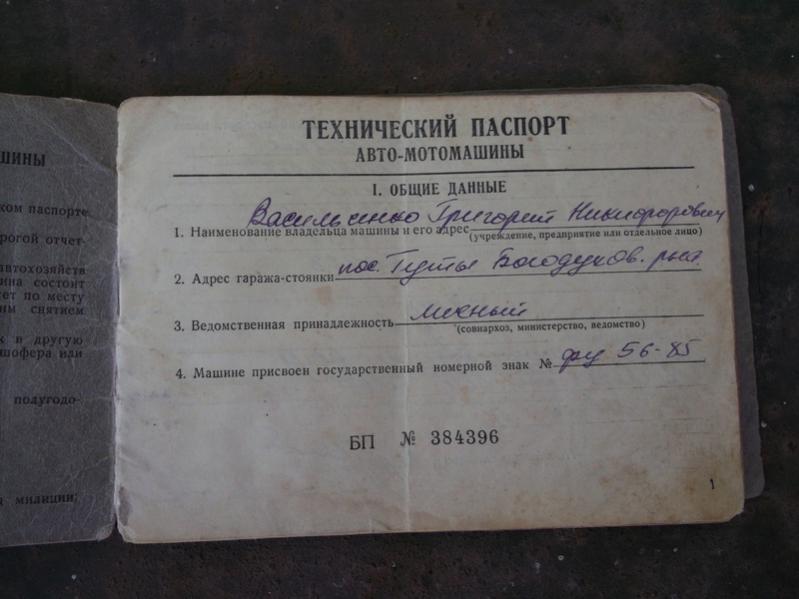 ШИНЫ
ком паспорте
рогой отчет-
автохозяйств
ина состоит
ет по месту
ым снятием
к в другую
шофера или
полугодо-
д милиции;
ТЕХНИЧЕСКИЙ ПАСПОРТ
АВТО-МОТОМАШИНЫ
I. ОБЩИЕ ДАННЫЕ
1. Наименование владельца машины и его адрес Васильченко Григорий Никифорович
(учреждение, предприятие или отдельное лицо)
2. Адрес гаража-стоянки пос. Гуты Богодухов. р-на
3. Ведомственная принадлежность личный
(совнархоз, министерство, ведомство)
4. Машине присвоен государственный номерной знак № 56-85
БП № 384396
1